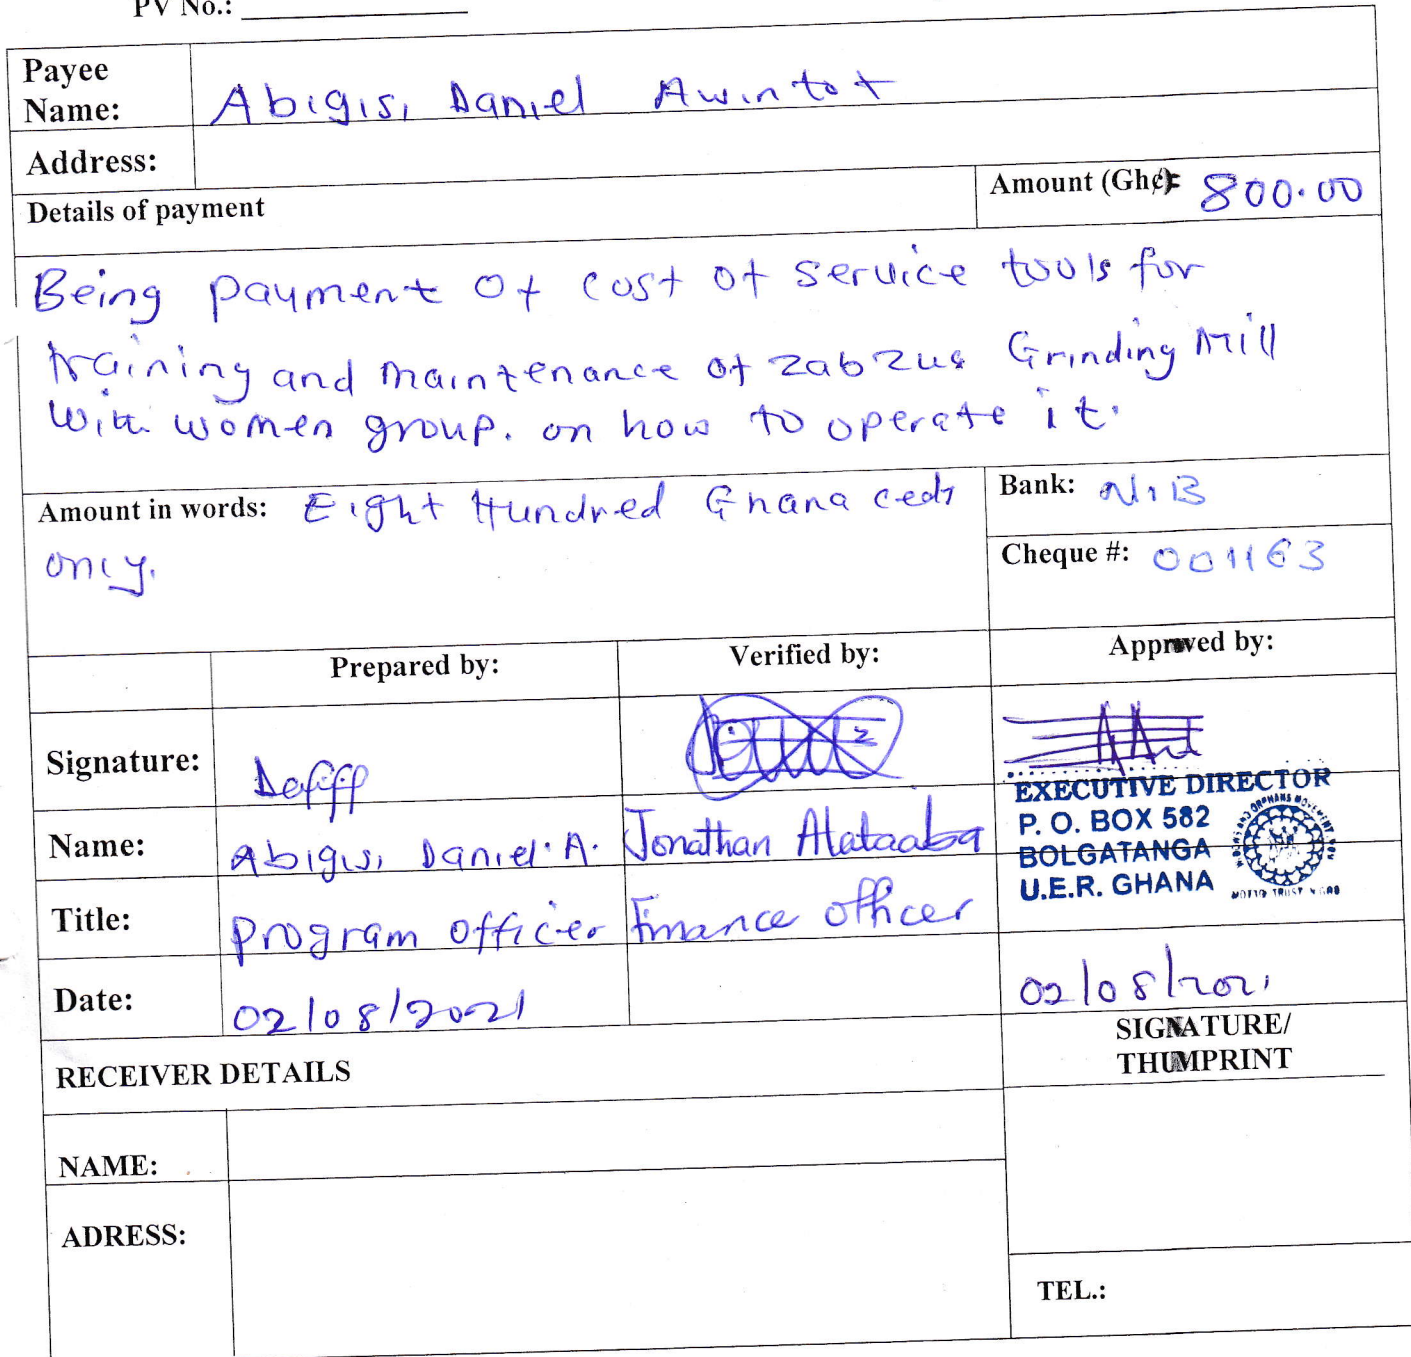 PV No.:
Payee Name: Abigis, Daniel Awintot
Address:
Details of payment Amount (Gh¢): 800.00
Being payment of cost of service tools for
training and maintenance of zabzug Grinding Mill
with women group. on how to operate it.
Amount in words: Eight Hundred Ghana cedis Bank: NIB
only. Cheque #: 001163
Prepared by: Verified by: Approved by:
Signature:
EXECUTIVE DIRECTOR
P. O. BOX 582
BOLGATANGA
U.E.R. GHANA
Name: Abigis, Daniel. A. Jonathan Alataaba
Title: Program officer Finance officer
Date: 02/08/2021 02/08/2021
RECEIVER DETAILS SIGNATURE/
THUMPRINT
NAME:
ADRESS:
TEL.: